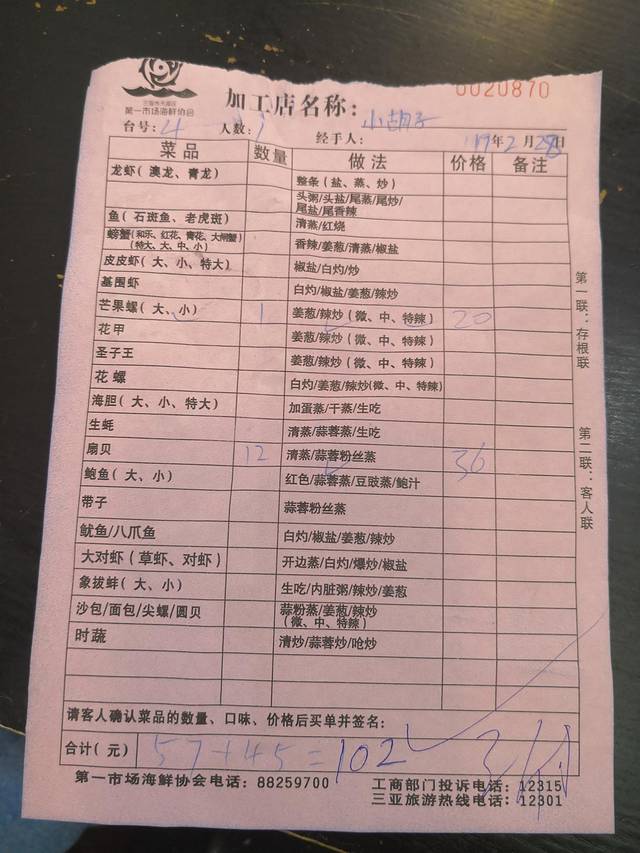 0020870
三亚市天涯区
第一市场海鲜协会
加工店名称: 小胡子
台号: 4 人数: 经手人: 19年2月28日
菜品 数量 做法 价格 备注
龙虾(澳龙、青龙) 整条(盐、蒸、炒)
头粥/头盐/尾蒸/尾炒/
尾盐/尾香辣
鱼(石斑鱼、老虎斑) 清蒸/红烧
螃蟹(和乐、红花、青花、大闸蟹)
(特大、大、中、小) 香辣/姜葱/清蒸/椒盐
皮皮虾(大、小、特大) 椒盐/白灼/炒
基围虾 白灼/椒盐/姜葱/辣炒
芒果螺(大、小) 1 姜葱/辣炒(微、中、特辣) 20
花甲 姜葱/辣炒(微、中、特辣)
圣子王 姜葱/辣炒(微、中、特辣)
花螺 白灼/姜葱/辣炒(微、中、特辣)
海胆(大、小、特大) 加蛋蒸/干蒸/生吃
生蚝 清蒸/蒜蓉蒸/生吃
扇贝 12 清蒸/蒜蓉粉丝蒸 36
鲍鱼(大、小) 红色/蒜蓉蒸/豆豉蒸/鲍汁
带子 蒜蓉粉丝蒸
鱿鱼/八爪鱼 白灼/椒盐/姜葱/辣炒
大对虾(草虾、对虾) 开边蒸/白灼/爆炒/椒盐
象拔蚌(大、小) 生吃/内脏粥/辣炒/姜葱
沙包/面包/尖螺/圆贝 蒜粉蒸/姜葱/辣炒
(微、中、特辣)
时蔬 清炒/蒜蓉炒/呛炒
请客人确认菜品的数量、口味、价格后买单并签名:
合计(元) 57+45=102
第一市场海鲜协会电话: 88259700 工商部门投诉电话: 12315
三亚旅游热线电话: 12301
第一联:存根联
第二联:客人联